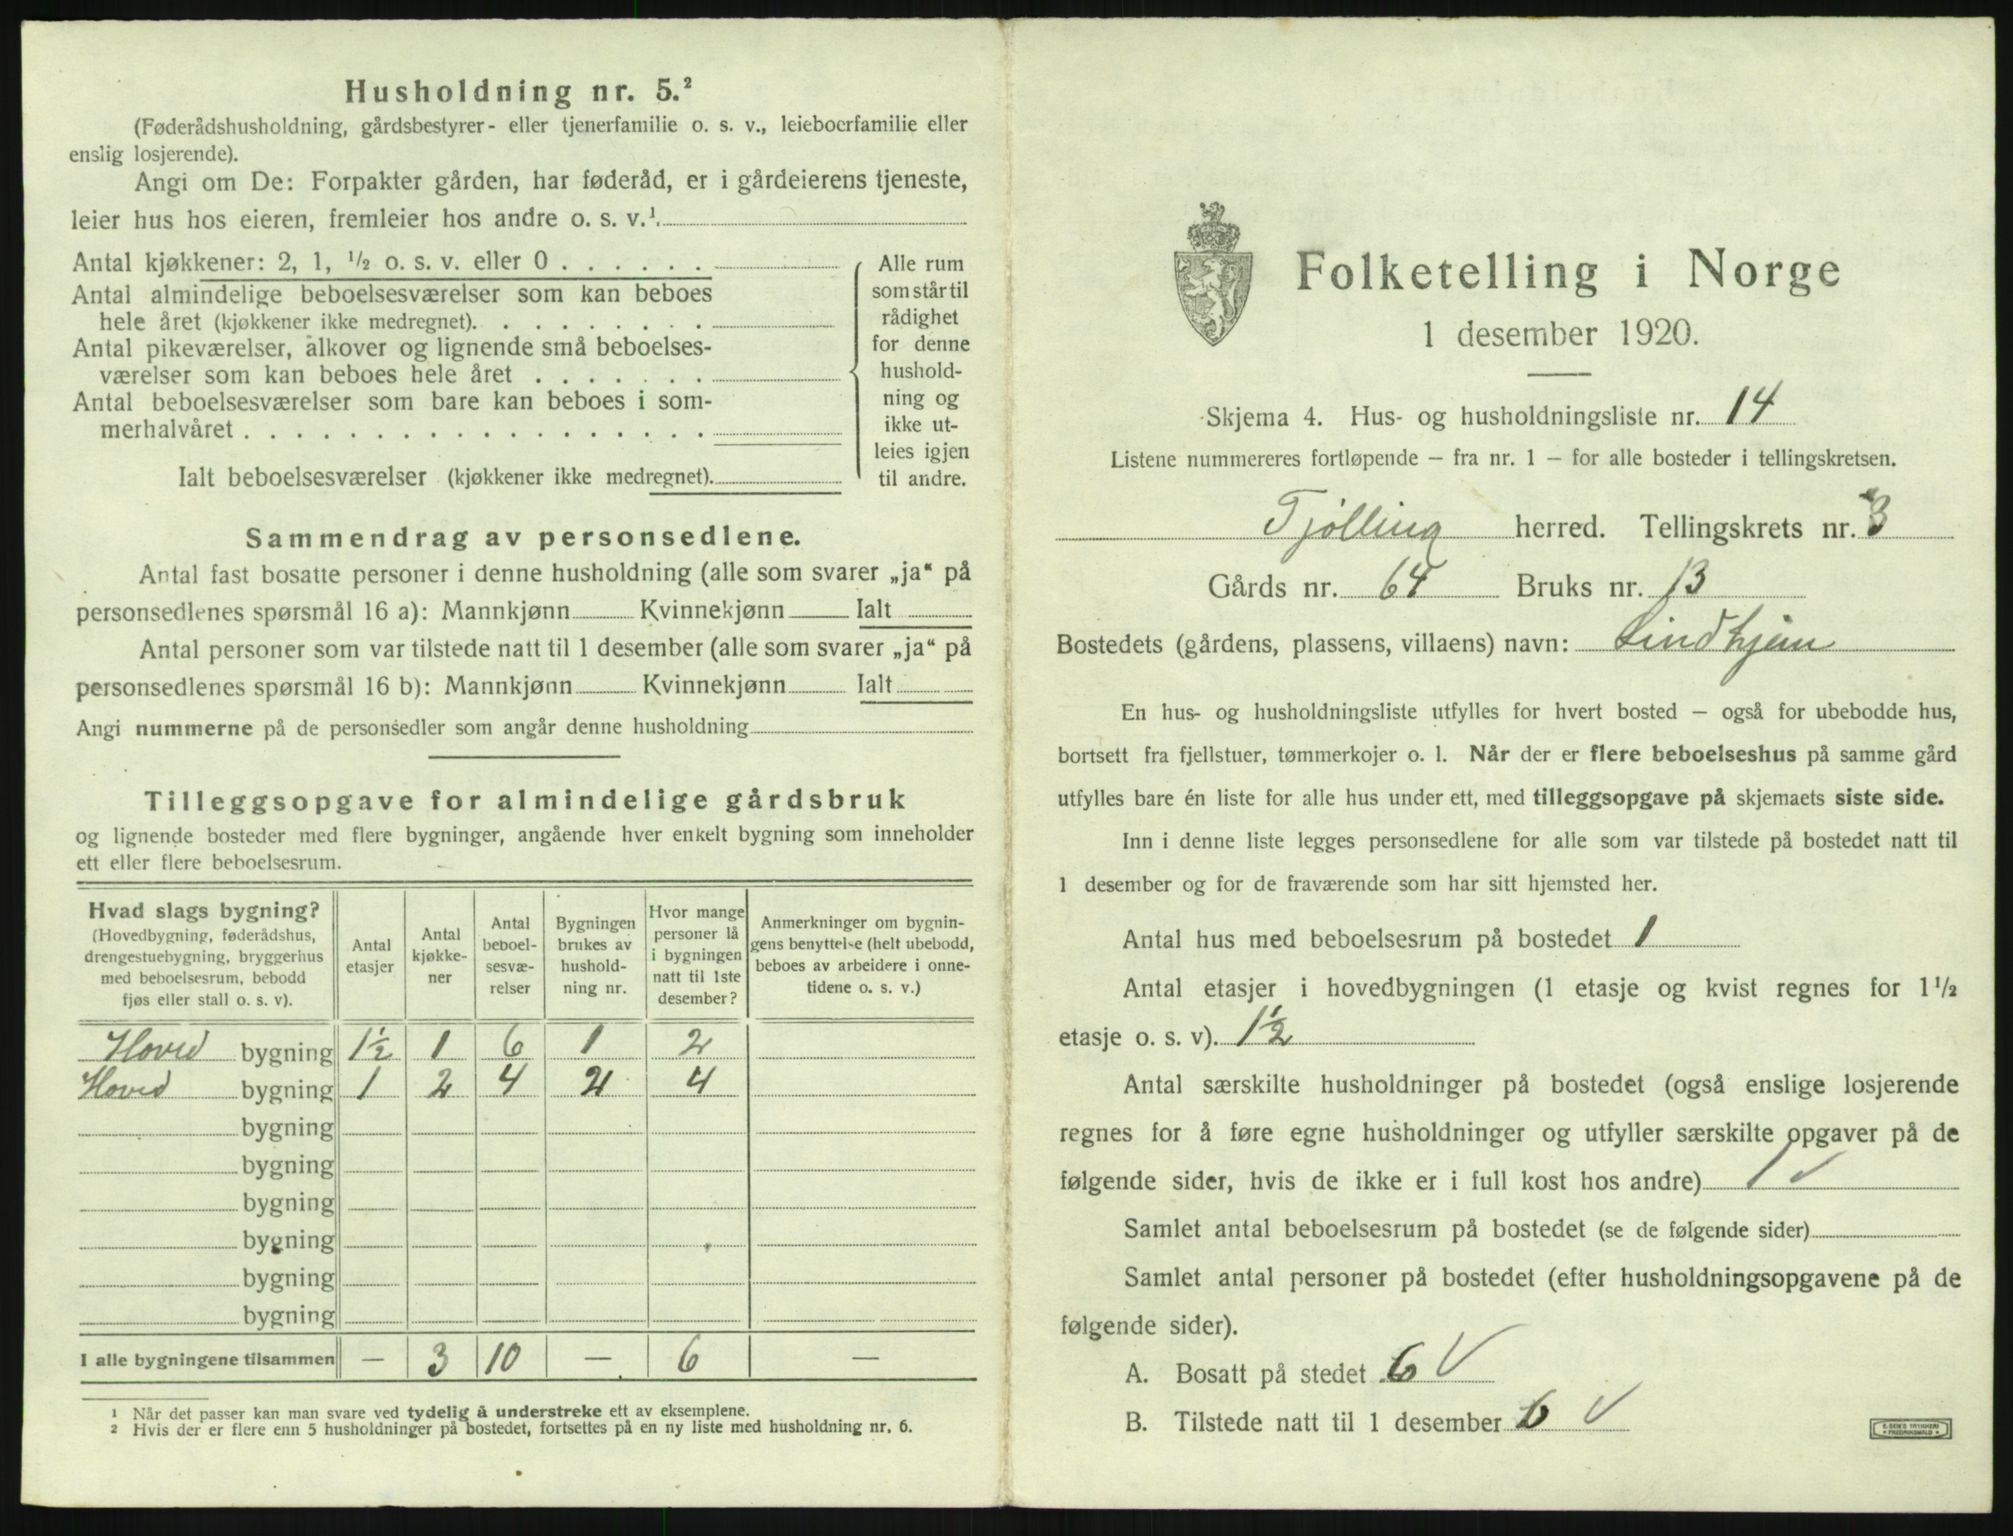 Husholdning nr. 5.²
(Føderådshusholdning, gårdsbestyrer- eller tjenerfamilie o. s. v., leieboerfamilie eller
enslig losjerende).
Angi om De: Forpakter gården, har føderåd, er i gårdeierens tjeneste,
leier hus hos eieren, fremleier hos andre o. s. v.¹.
Antal kjøkkener: 2, 1, ¹/₂ o. s. v. eller 0 . . . . . .
Antal almindelige beboelsesværelser som kan beboes
hele året (kjøkkener ikke medregnet). . . . . . . . .
Antal pikeværelser, alkover og lignende små beboelses-
værelser som kan beboes hele året . . . . . . .
Antal beboelsesværelser som bare kan beboes i som-
merhalvåret . . . . . . . . . . . . . . . . . .
Ialt beboelsesværelser (kjøkkener ikke medregnet).
Alle rum
som står til
rådighet
for denne
hushold-
ning og
ikke ut-
leies igjen
til andre.
Sammendrag av personsedlene.
Antal fast bosatte personer i denne husholdning (alle som svarer „ja“ på
personsedlenes spørsmål 16 a): Mannkjønn Kvinnekjønn Ialt
Antal personer som var tilstede natt til 1 desember (alle som svarer „ja“ på
personsedlenes spørsmål 16 b): Mannkjønn Kvinnekjønn Ialt
Angi nummerne på de personsedler som angår denne husholdning
Tilleggsopgave for almindelige gårdsbruk
og lignende bosteder med flere bygninger, angående hver enkelt bygning som inneholder
ett eller flere beboelsesrum.
Hvad slags bygning?
(Hovedbygning, føderådshus,
drengestuebygning, bryggerhus
med beboelsesrum, bebodd
fjøs eller stall o. s. v).
Antal
etasjer
Antal
kjøkke-
ner
Antal
beboel-
sesvæ-
relser
Bygningen
brukes av
hushold-
ning nr.
Hvor mange
personer lå
i bygningen
natt til 1ste
desember?
Anmerkninger om bygnin-
gens benyttelse (helt ubebodd,
beboes av arbeidere i onne-
tidene o. s. v.)
Hoved bygning 1½ 1 6 1 2
Hoved bygning 1 2 4 2 4
bygning
bygning
bygning
bygning
bygning
bygning
I alle bygningene tilsammen — 3 10 — 6 —
¹ Når det passer kan man svare ved tydelig å understreke ett av eksemplene.
² Hvis der er flere enn 5 husholdninger på bostedet, fortsettes på en ny liste med husholdning nr. 6.
Folketelling i Norge
1 desember 1920.
Skjema 4. Hus- og husholdningsliste nr. 14
Listene nummereres fortløpende – fra nr. 1 – for alle bosteder i tellingskretsen.
Tjølling herred. Tellingskrets nr. 3
Gårds nr. 64 Bruks nr. 13
Bostedets (gårdens, plassens, villaens) navn: Lindhjem
En hus- og husholdningsliste utfylles for hvert bosted – også for ubebodde hus,
bortsett fra fjellstuer, tømmerkojer o. l. Når der er flere beboelseshus på samme gård
utfylles bare én liste for alle hus under ett, med tilleggsopgave på skjemaets siste side.
Inn i denne liste legges personsedlene for alle som var tilstede på bostedet natt til
1 desember og for de fraværende som har sitt hjemsted her.
Antal hus med beboelsesrum på bostedet 1
Antal etasjer i hovedbygningen (1 etasje og kvist regnes for 1¹/₂
etasje o. s. v). 1½
Antal særskilte husholdninger på bostedet (også enslige losjerende
regnes for å føre egne husholdninger og utfyller særskilte opgaver på de
følgende sider, hvis de ikke er i full kost hos andre) 1 ✓
Samlet antal beboelsesrum på bostedet (se de følgende sider)
Samlet antal personer på bostedet (efter husholdningsopgavene på de
følgende sider).
A. Bosatt på stedet 6 ✓
B. Tilstede natt til 1 desember 6 ✓